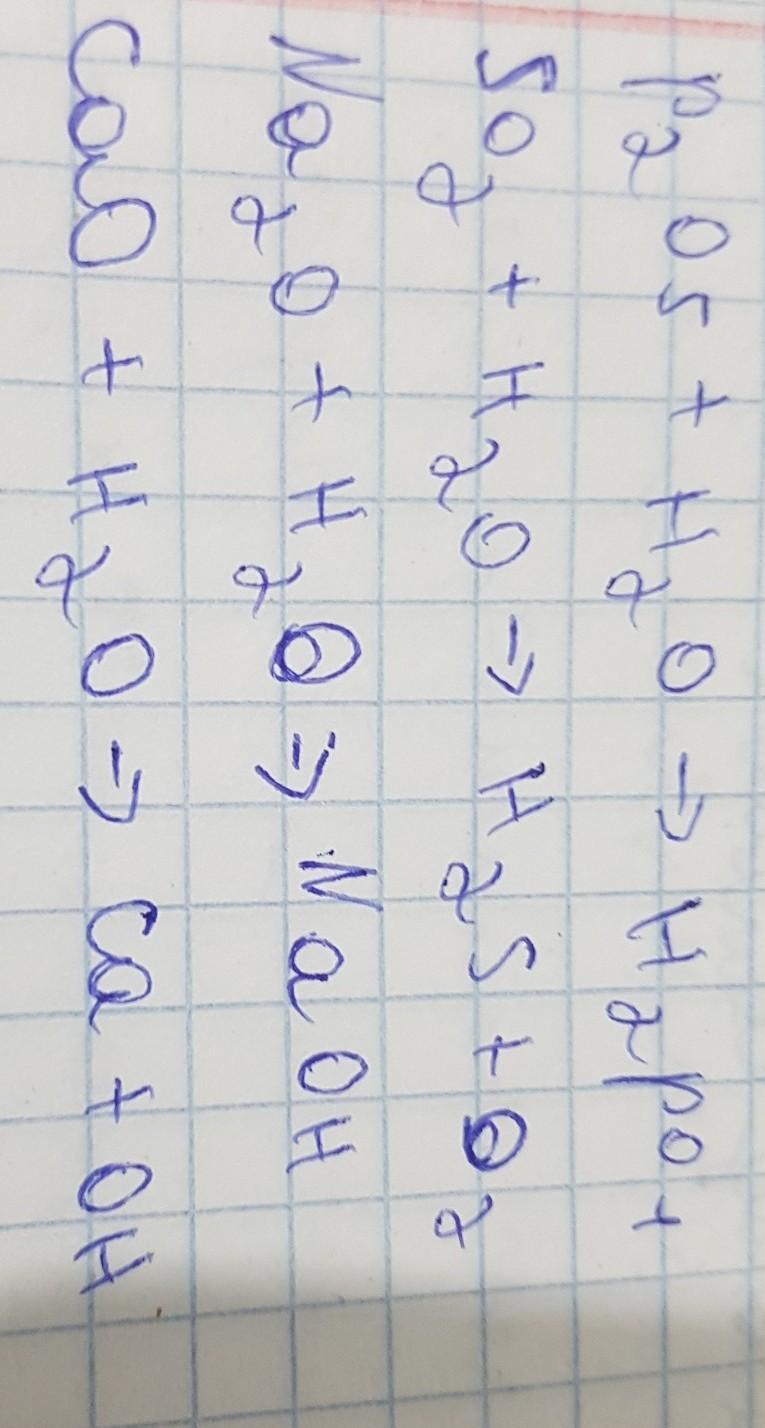 P₂O5 + H₂O → H₂PO4
SO₂ + H₂O → H₂S + O₂
Na₂O + H₂O → NaOH
CaO + H₂O → Ca + OH